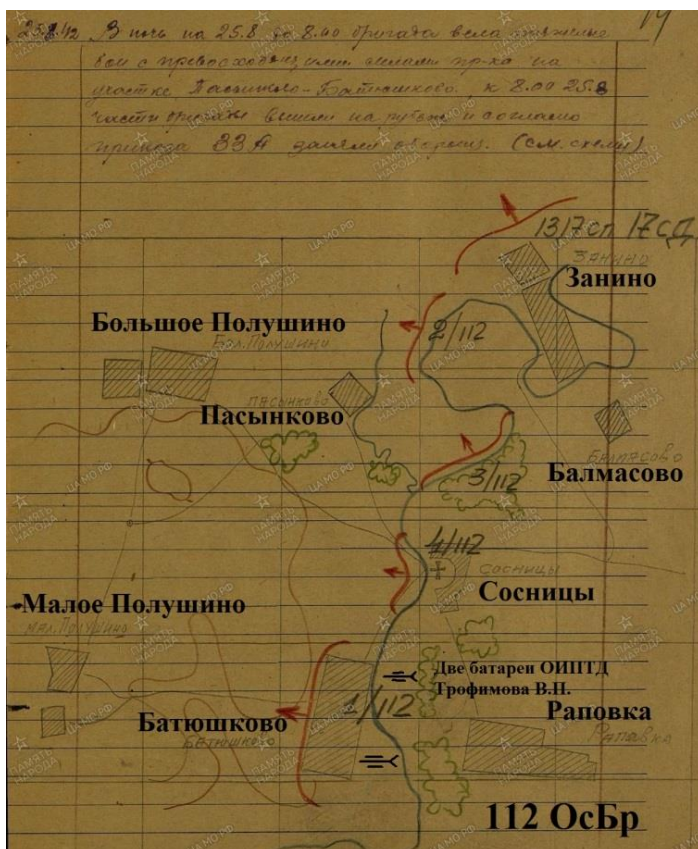 14
25.8.42 В ночь на 25.8 до 8.00 бригада вела
бои с превосходящими силами пр-ка на
участке Пасынково-Батюшково, к 8.00 25.8
части бригады вышли на рубеж и согласно
приказа 33А заняли оборону. (см. схему)
1317 сп 17 СД
ЗАНИНО
Занино
Большое Полушино
Бол. Полушино
2/112
ПАСЫНКОВО
Пасынково
БАЛМАСОВО
Балмасово
3/112
4/112
СОСНИЦЫ
Сосницы
Малое Полушино
МАЛ. ПОЛУШИНО
Две батареи ОИПТД
Трофимова В.П.
Раповка
РАПОВКА
1/112
Батюшково
БАТЮШКОВО
112 ОсБр
ПАМЯТЬ НАРОДА
ЦАМО.РФ